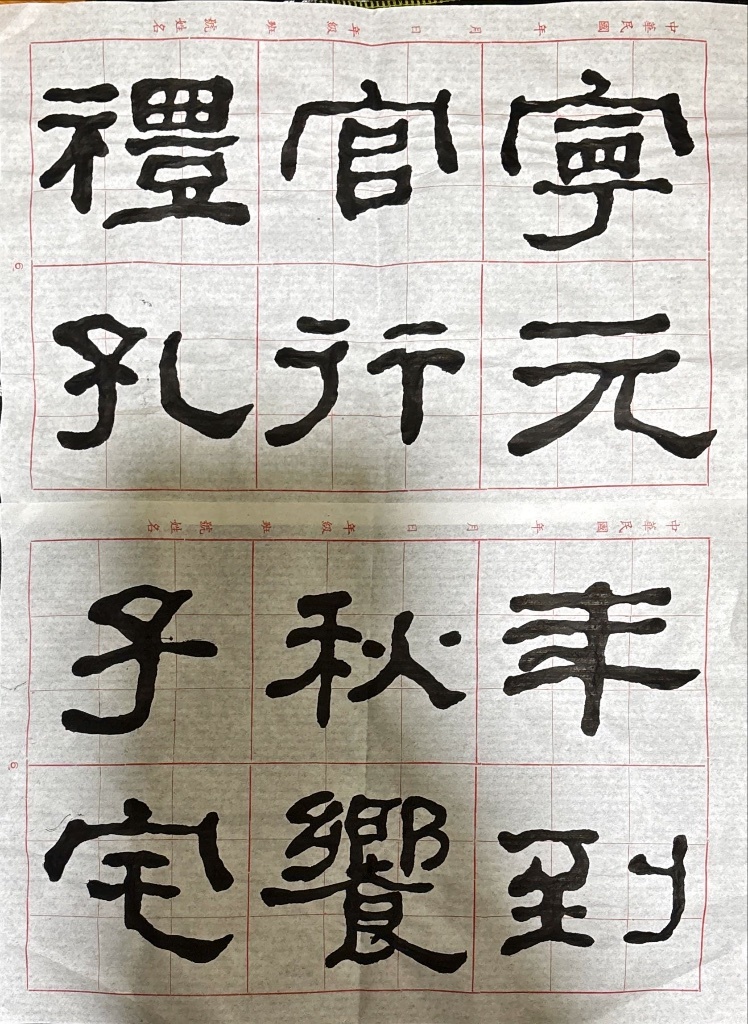 中華民國　年　月　日　年級　班　號　姓名
寧元年到
官行秋饗
禮孔子宅
6
中華民國　年　月　日　年級　班　號　姓名
6